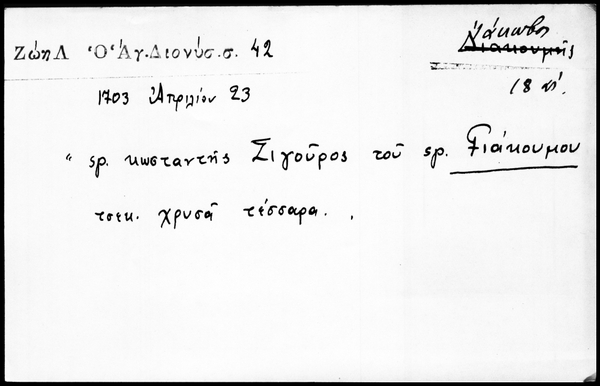 Ζώη Λ Ὁ Ἅγ. Διονύσ. σ. 42
Ἰάκωβος
Διακουμῆς
18 αἰ.
1703 Ἀπριλίου 23
" sp. κωσταντῆς Σιγοῦρος τοῦ sp. Γιάκουμου
τσεκ. χρυσᾶ τέσσαρα.